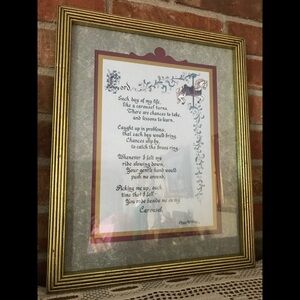 Lord,
Each day of my life,
like a carousel turns.
There are chances to take,
and lessons to learn.
Caught up in problems,
that each day would bring.
Chances slip by,
to catch the brass ring.
Whenever I felt my
ride slowing down,
Your gentle hand would
push me around.
Picking me up, each
time that I fell -
You rode beside me on my
Carousel.